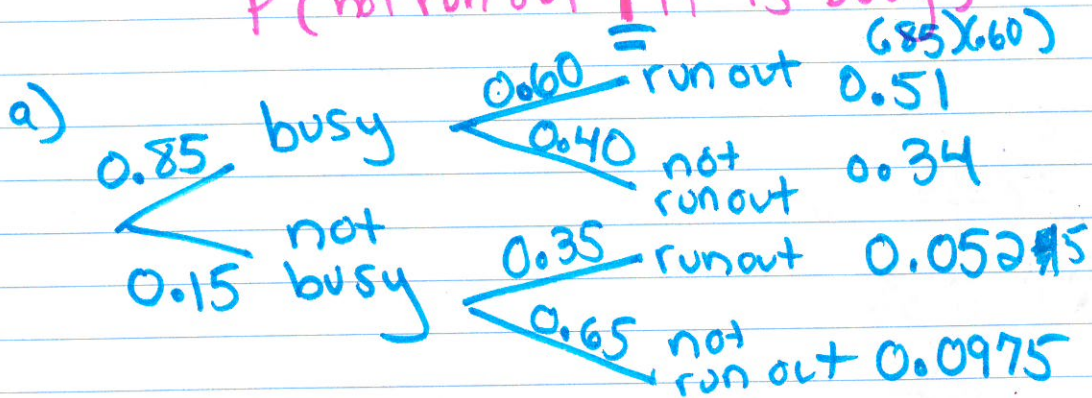 P(not run out | it is busy)
=
(.85)(.60)
a) 0.85 busy 0.60 run out 0.51
0.40 not run out 0.34
0.15 not busy 0.35 run out 0.0525
0.65 not run out 0.0975